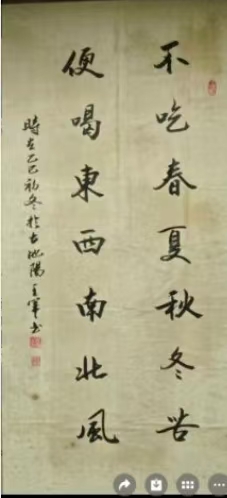 不吃春夏秋冬苦
便喝東西南北風
時在乙巳初冬於古池陽王軍书